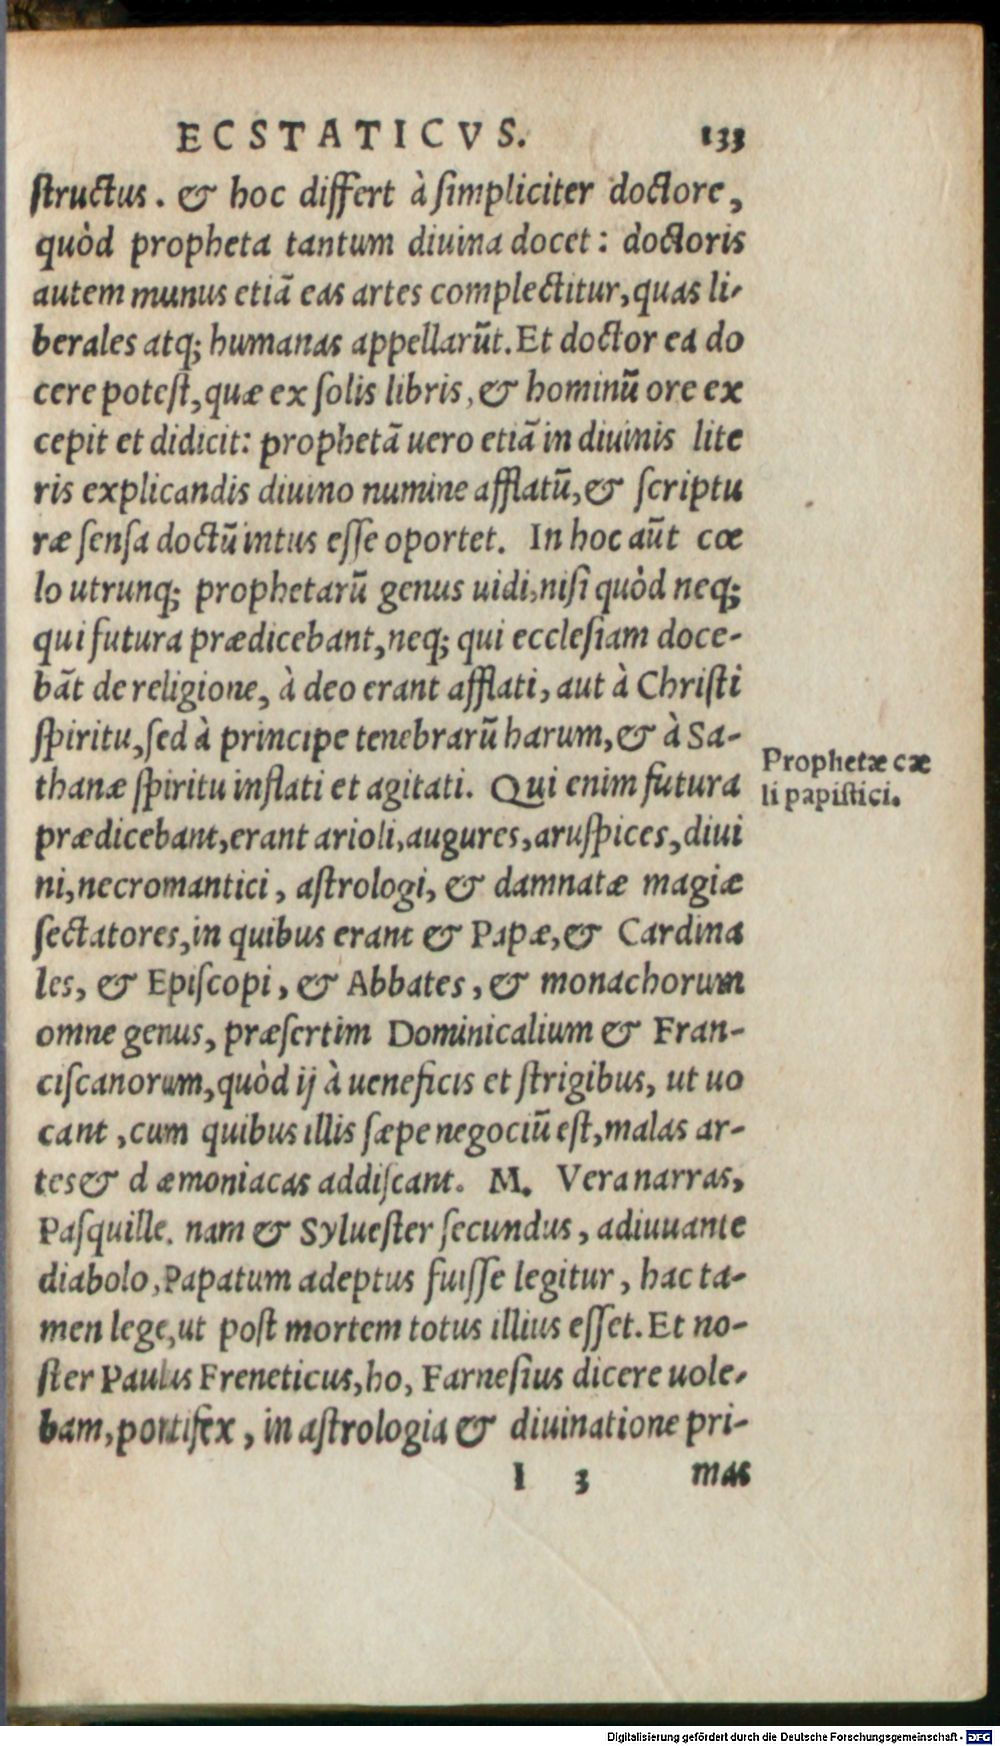 ECSTATICVS. 133
structus. & hoc differt à simpliciter doctore,
quòd propheta tantum diuina docet: doctoris
autem munus etiā eas artes complectitur, quas li-
berales atq; humanas appellarūt. Et doctor ea do
cere potest, quæ ex solis libris, & hominū ore ex
cepit et didicit: prophetā uero etiā in diuinis lite
ris explicandis diuino numine afflatū, & scriptu
ræ sensa doctū intus esse oportet. In hoc aūt cœ
lo utrunq; prophetarū genus uidi, nisi quòd neq;
qui futura prædicebant, neq; qui ecclesiam doce-
bāt de religione, à deo erant afflati, aut à Christi
spiritu, sed à principe tenebrarū harum, & à Sa-
thanæ spiritu inflati et agitati. Qui enim futura
prædicebant, erant arioli, augures, aruspices, diui
ni, necromantici, astrologi, & damnatæ magiæ
sectatores, in quibus erant & Papæ, & Cardina
les, & Episcopi, & Abbates, & monachorum
omne genus, præsertim Dominicalium & Fran-
ciscanorum, quòd ij à ueneficis et strigibus, ut uo
cant, cum quibus illis sæpe negociū est, malas ar-
tes & dæmoniacas addiscant. M. Vera narras,
Pasquille. nam & Syluester secundus, adiuuante
diabolo, Papatum adeptus fuisse legitur, hac ta-
men lege, ut post mortem totus illius esset. Et no-
ster Paulus Freneticus, ho, Farnesius dicere uole-
bam, pontifex, in astrologia & diuinatione pri-
I 3 mas
Prophetæ cæ
li papistici.
Digitalisierung gefördert durch die Deutsche Forschungsgemeinschaft - DFG